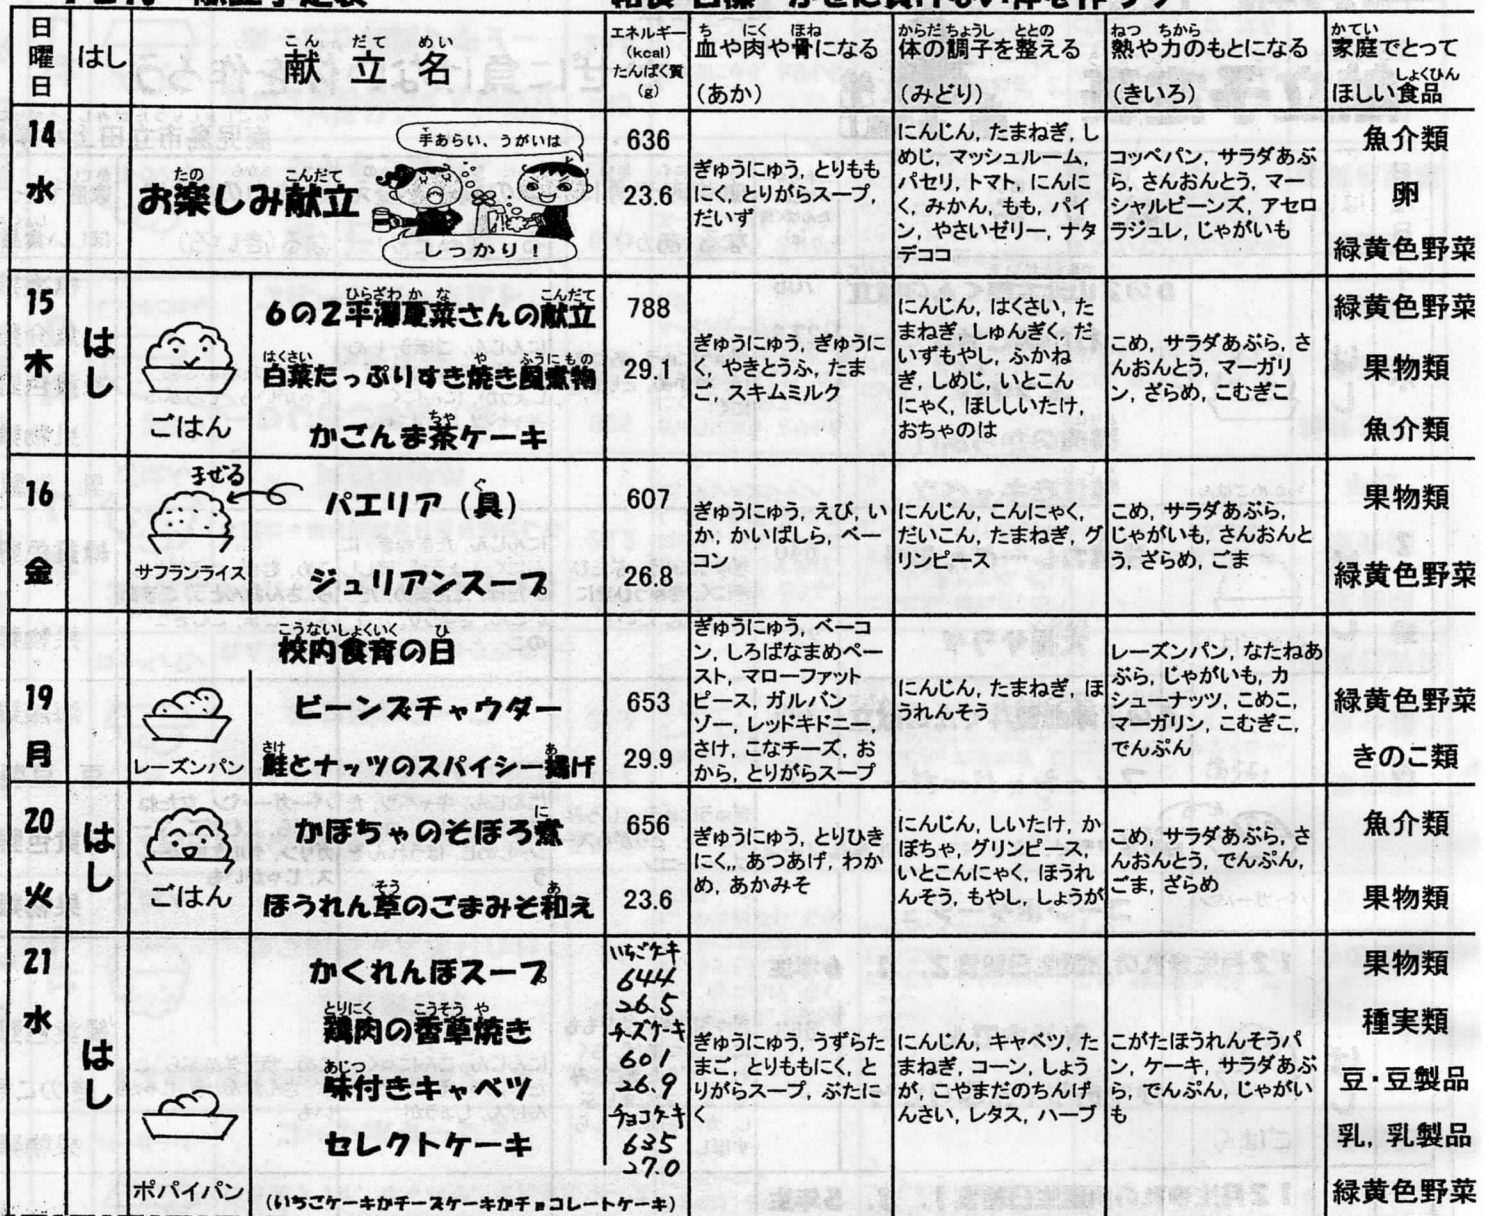 日曜日
はし
こん だて めい
献立名
エネルギー
(kcal)
たんぱく質
(g)
ち にく ほね
血や肉や骨になる
(あか)
からだ ちょうし ととの
体の調子を整える
(みどり)
ねつ ちから
熱や力のもとになる
(きいろ)
かてい
家庭でとって
しょくひん
ほしい食品
14
水
たの こんだて
お楽しみ献立
手あらい、うがいは
しっかり!
636
23.6
ぎゅうにゅう, とりもも
にく, とりがらスープ,
だいず
にんじん, たまねぎ, し
めじ, マッシュルーム,
パセリ, トマト, にんに
く, みかん, もも, パイ
ン, やさいゼリー, ナタ
デココ
コッペパン, サラダあぶ
ら, さんおんとう, マー
シャルビーンズ, アセロ
ラジュレ, じゃがいも
魚介類
卵
緑黄色野菜
15
木
はし
ごはん
ひらざわ か な こんだて
6の2平澤夏菜さんの献立
はくさい や ふうに もの
白菜たっぷりすき焼き風煮物
ちゃ
かごんま茶ケーキ
788
29.1
ぎゅうにゅう, ぎゅうに
く, やきとうふ, たま
ご, スキムミルク
にんじん, はくさい, た
まねぎ, しゅんぎく, だ
いずもやし, ふかね
ぎ, しめじ, いとこん
にゃく, ほししいたけ,
おちゃのは
こめ, サラダあぶら, さ
んおんとう, マーガリ
ン, ざらめ, こむぎこ
緑黄色野菜
果物類
魚介類
16
金
まぜる
サフランライス
ぐ
パエリア(具)
ジュリアンスープ
607
26.8
ぎゅうにゅう, えび, い
か, かいばしら, ベー
コン
にんじん, こんにゃく,
だいこん, たまねぎ, グ
リンピース
こめ, サラダあぶら,
じゃがいも, さんおんと
う, ざらめ, ごま
果物類
緑黄色野菜
19
月
レーズンパン
こうないしょくいく ひ
校内食育の日
ビーンズチャウダー
さけ あ
鮭とナッツのスパイシー揚げ
653
29.9
ぎゅうにゅう, ベーコ
ン, しろばなまめペー
スト, マローファット
ピース, ガルバン
ゾー, レッドキドニー,
さけ, こなチーズ, お
から, とりがらスープ
にんじん, たまねぎ, ほ
うれんそう
レーズンパン, なたねあ
ぶら, じゃがいも, カ
シューナッツ, こめこ,
マーガリン, こむぎこ,
でんぷん
緑黄色野菜
きのこ類
20
火
はし
ごはん
に
かぼちゃのそぼろ煮
そう あ
ほうれん草のごまみそ和え
656
23.6
ぎゅうにゅう, とりひき
にく,, あつあげ, わか
め, あかみそ
にんじん, しいたけ, か
ぼちゃ, グリンピース,
いとこんにゃく, ほうれ
んそう, もやし, しょうが
こめ, サラダあぶら, さ
んおんとう, でんぷん,
ごま, ざらめ
魚介類
果物類
21
水
はし
ポパイパン
かくれんぼスープ
とりにく こうそう や
鶏肉の香草焼き
あじつ
味付きキャベツ
セレクトケーキ
(いちごケーキかチーズケーキかチョコレートケーキ)
いちごケーキ
644
26.5
チーズケーキ
601
26.9
チョコケーキ
635
27.0
ぎゅうにゅう, うずらた
まご, とりももにく, と
りがらスープ, ぶたに
く
にんじん, キャベツ, た
まねぎ, コーン, しょう
が, こやまだのちんげ
んさい, レタス, ハーブ
こがたほうれんそうパ
ン, ケーキ, サラダあぶ
ら, でんぷん, じゃがい
も
果物類
種実類
豆・豆製品
乳, 乳製品
緑黄色野菜